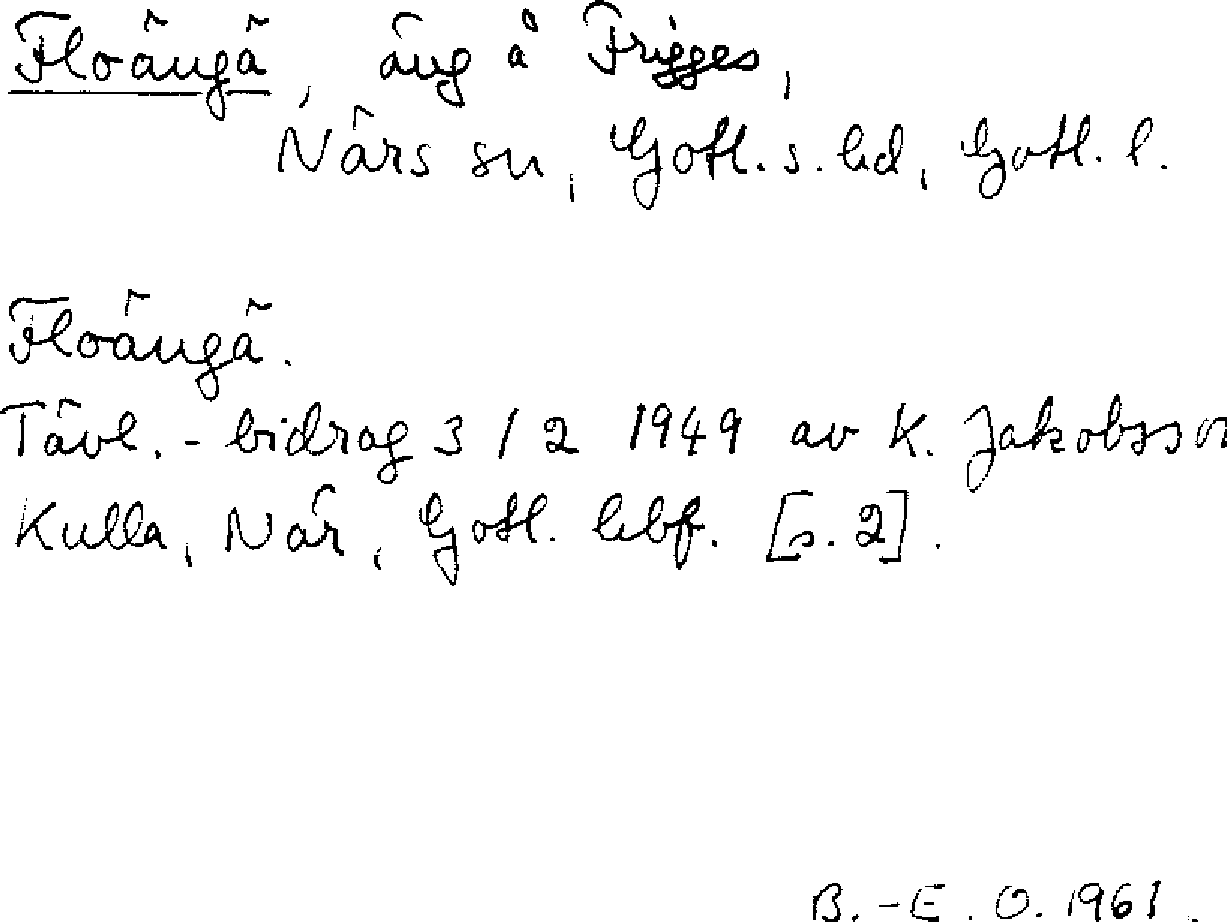 Floängä, äng å Frigges,
Närs sn, Gotl. s. hd, Gotl. l.
Floängä.
Tävl.-bidrag 3/2 1949 av K. Jakobsson
Kulla, När, Gotl. hbf. [s. 2].
B.-E. O. 1961.